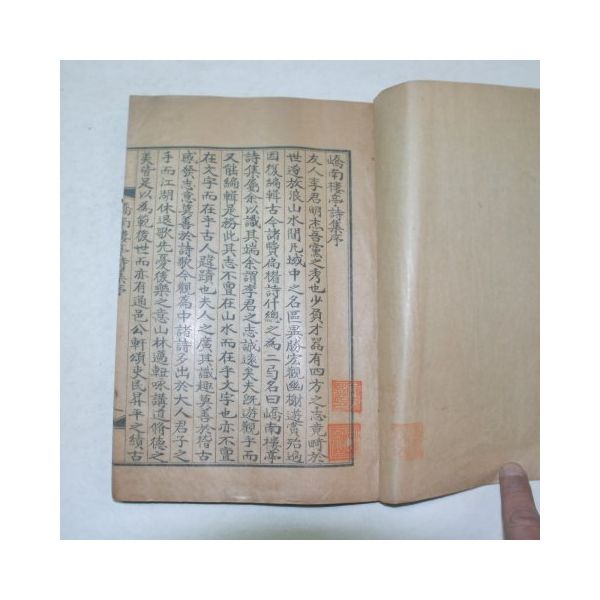 嶠南樓亭詩集序
友人李君明杰吾黨之秀也少負才器有四方之志竟畸於
世遊放浪山水間凡域中之名區異勝宏觀幽榭遊賞殆遍
因復編輯古今諸賢扁楣詩什總之爲二局名曰嶠南樓亭
詩集屬余以識其端余謂李君之志誠遠矣夫旣遊觀乎而
又能編輯是務此其志不亶在山水而在乎文字也亦不亶
在文字而在乎古人躅蹟也夫人之廣其識趣莫善於稽古
感發志意莫善於詩歌今觀篇中諸詩多出於大人君子之
手而江湖休退歌先憂後樂之意山林邁軸咏講道脩德之
美皆足以爲範後世而亦有通邑公軒頌吏民昇平之績古
嶠南樓亭詩集序